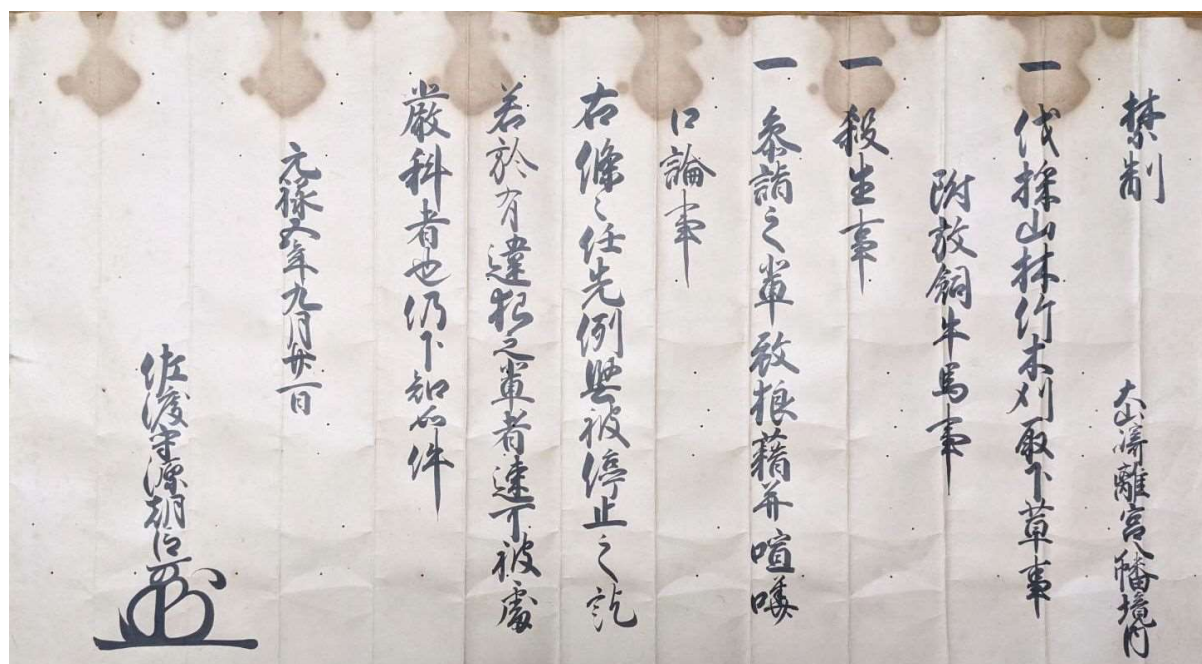 禁制
大山崎離宮八幡境内
一 伐採山林竹木刈取下草事
附放飼牛馬事
一 殺生事
一 参詣之輩致狼藉并喧嘩
口論事
右條々任先例堅被停止之訖
若於有違犯之輩者速可被處
嚴科者也仍下知如件
元禄五年九月廿一日
佐渡守源朝臣